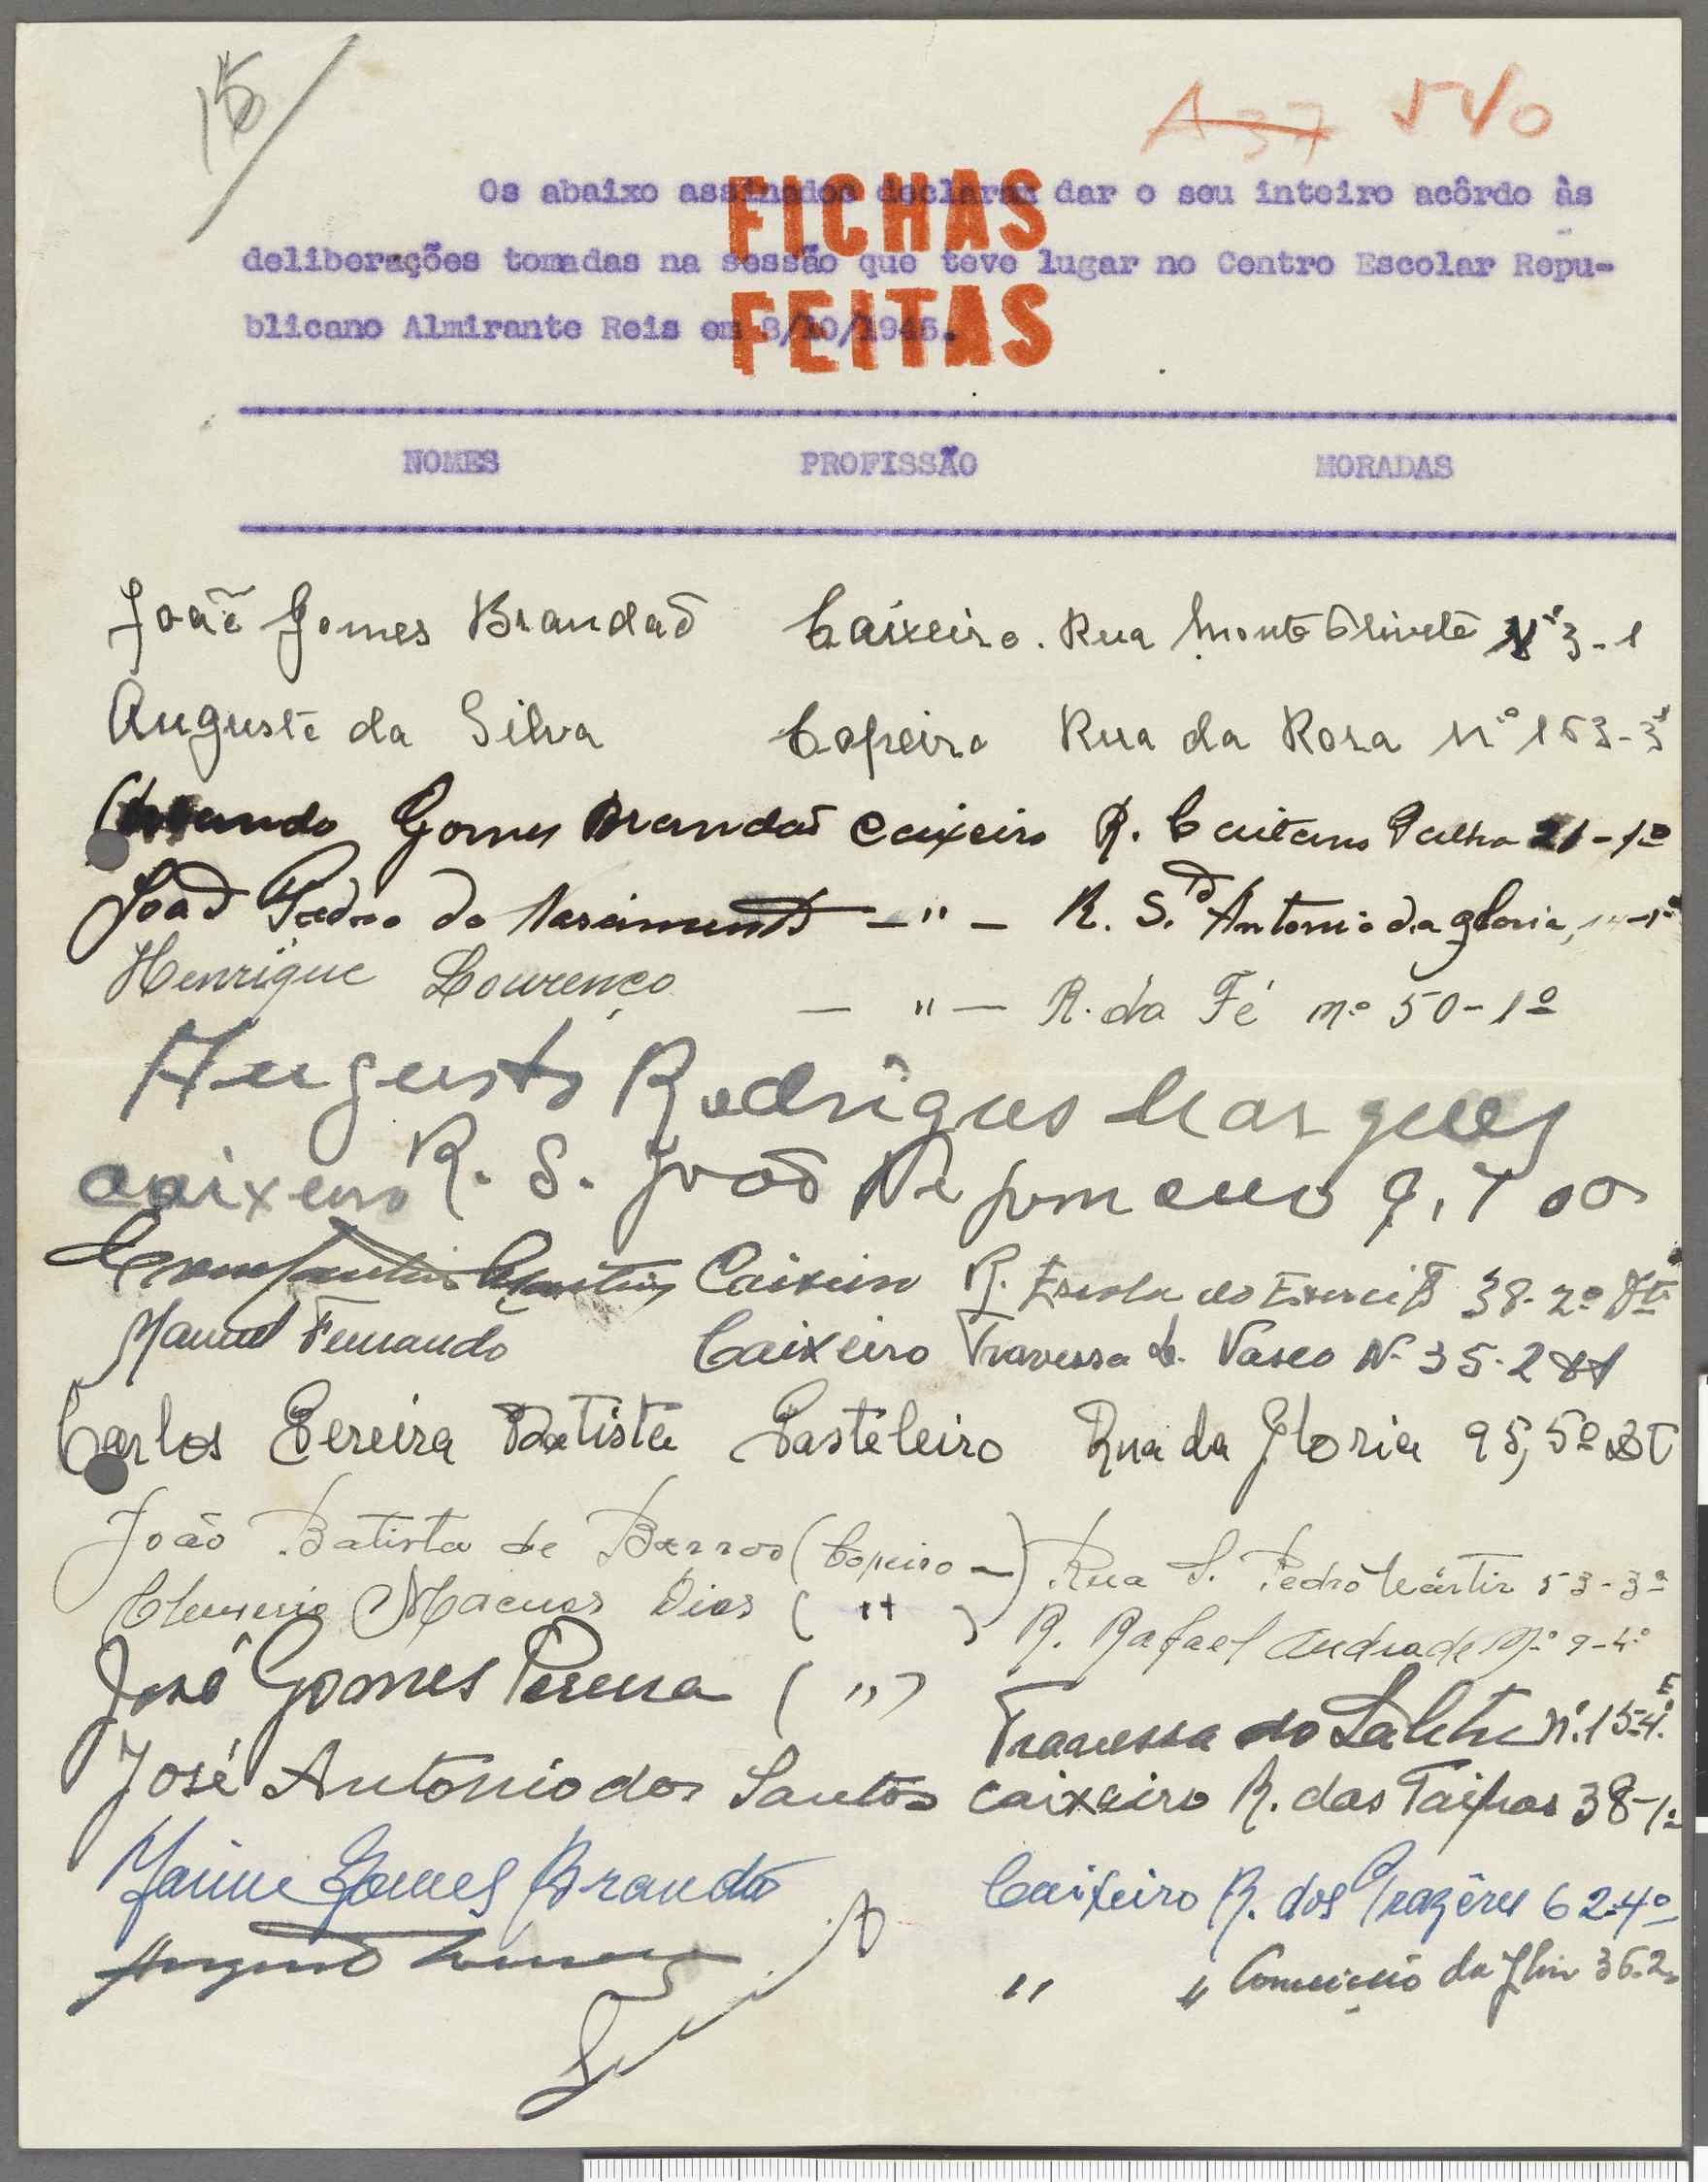 15
A 37 540
Os abaixo assinados declaram dar o seu inteiro acôrdo às
FICHAS
deliberações tomadas na sessão que teve lugar no Centro Escolar Repu-
blicano Almirante Reis em 8/10/1945.
FEITAS
NOMES PROFISSÃO MORADAS
João Gomes Brandão Caixeiro. Rua Monte Olivete Nº 3-1
Augusto da Silva Copeiro Rua da Rosa Nº 153-3º
Gomes Brandão Caixeiro R. Caitano Palha 21-1º
João Pedro do Nascimento - " - R. S.to Antonio da Gloria,
Henrique Lourenço - " - R. da Fé nº 50-1º
Augusto Rodrigues Marques
caixeiro R. S. João Nepomeuno 9,
Caixeiro R. Escola do Exercito 38-2º Dto
Manuel Fernando Caixeiro Travessa d. Vasco N. 35-2
Carlos Pereira Batista Pasteleiro Rua da Gloria 95, 5º
João Batista de Barros (Copeiro -) Rua S. Pedro Mártir 53-3º
Macuas Dias ( " ) R. Rafael Andrade Nº 9-4º
José Gomes Pereira ( " ) Travessa do Salitre Nº 15-4º E
José Antonio dos Santos caixeiro R. das Taipas 38-1º
Jaime Gomes Brandão Caixeiro R. dos Prazêres 62-4º
Augusto " " Conceição da Glória 36-2º